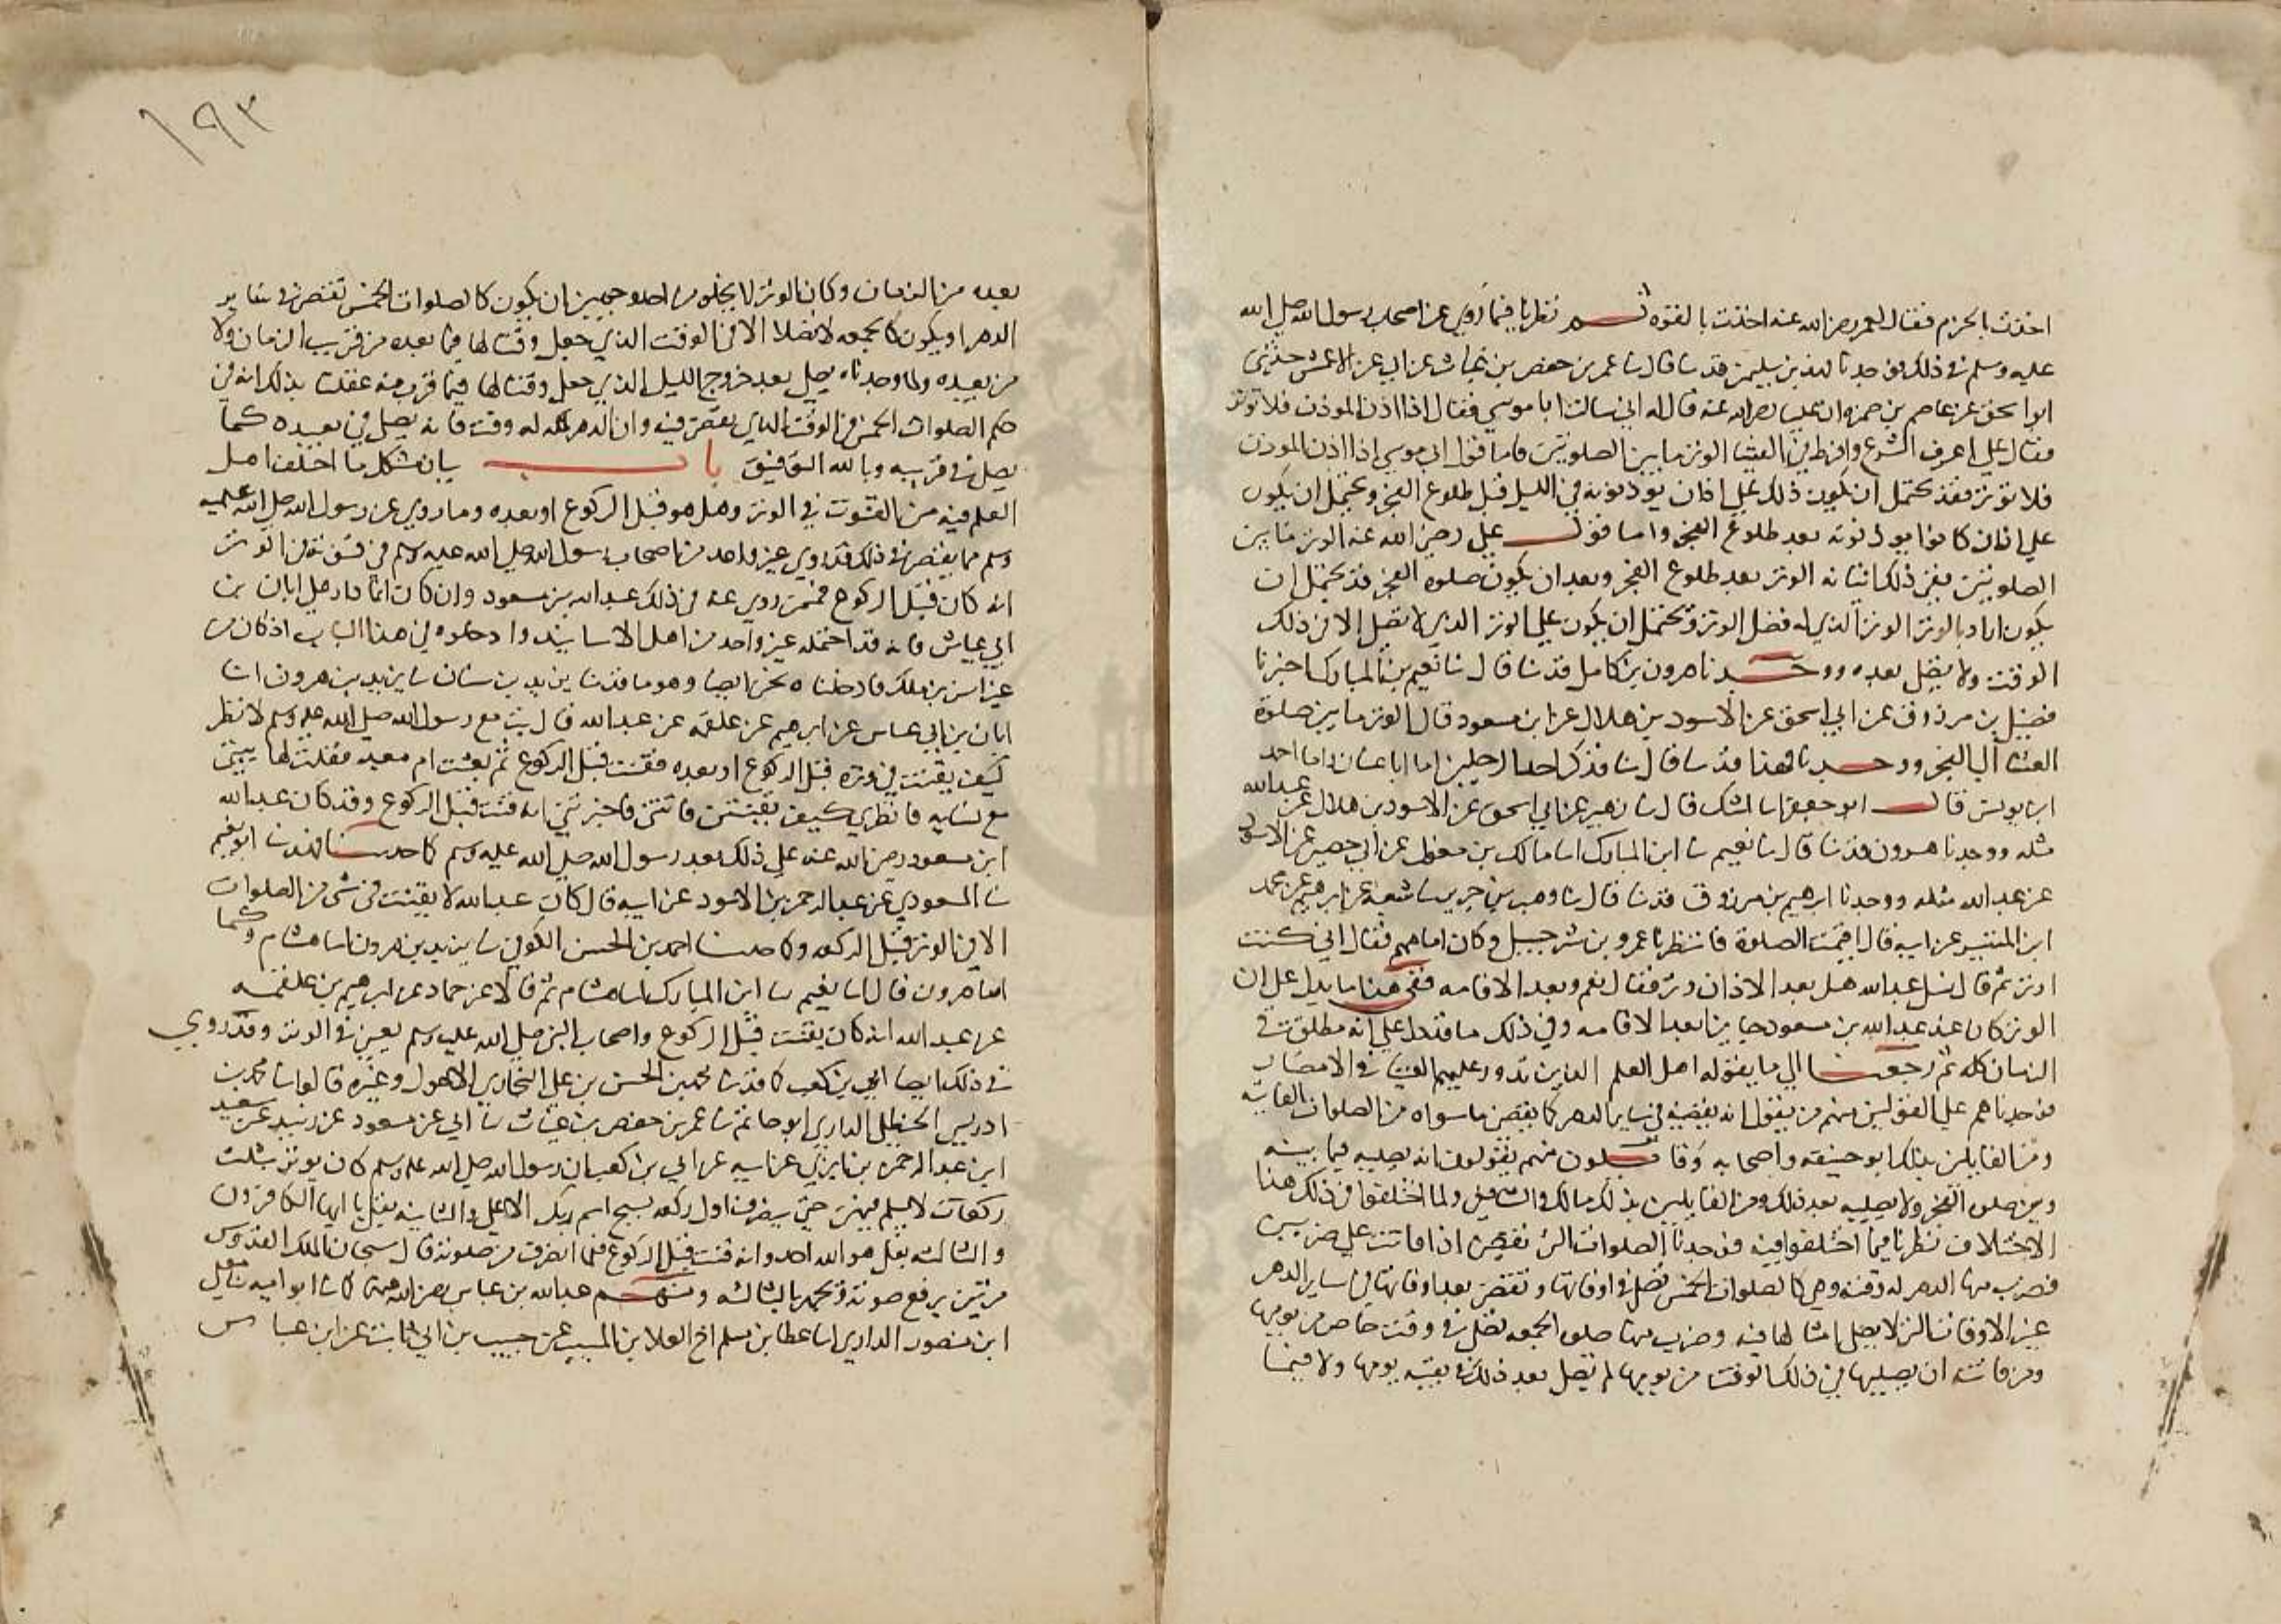 اخذت بالحزم فقال لعمر رضي الله عنه اخذت بالقوه ثم نظرنا فيما روي عن اصحاب رسول الله صلى الله
عليه وسلم في ذلك فوجدنا فهد بن سليمن قد سا قال سا عمر بن حفص بن غياث سا ابي عن الاعمش حدثني
ابو اسحق عن عاصم بن ضمره ان عليا رضي الله عنه قال له اني سالت ابا موسي فقال اذا اذن الموذن فلا توتر
فقال علي اغرق النزع وافرط في الفتيا الوتر ما بين الصلوتين فاما قول ابي موسي اذا اذن الموذن
فلا توتر فقد يحتمل ان يكون ذلك علي اذان يوذنونه في الليل قبل طلوع الفجر ويحتمل ان يكون
علي اذان كانوا يوذنونه بعد طلوع الفجر واما قول علي رضي الله عنه الوتر ما بين
الصلوتين ففي ذلك اثباته الوتر بعد طلوع الفجر وبعد ان يكون صلوه الفجر قد يحتمل ان
يكون اراد بالوتر الوتر الذي له فضل الوتر ويحتمل ان يكون علي الوتر الذي لا يصلى الا في ذلك
الوقت ولا يصلي بعده ووجدنا هرون بن كامل قد سا قال سا نعيم بن المبارك اخبرنا
فضيل بن مرزوق عن ابي اسحق عن الاسود بن هلال عن ابن مسعود قال الوتر ما بين صلوة
العشا الى الفجر ووجدنا فهدا قد سا قال سا فذكر احد الرجلين اما ابا غسان واما احمد
ابن يونس قال ابو جعفر انا اشك قال سا زهير عن ابي اسحق عن الاسود بن هلال عن عبد الله
مثله ووجدنا هرون قد سا قال سا نعيم سا ابن المبارك انا مالك بن مغول عن ابي حصين عن الاسود
عن عبد الله مثله ووجدنا ابراهيم بن مرزوق قد سا قال سا وهب بن جرير سا شعبة عن ابرهيم عن محمد
ابن المنتشر عن ابيه قال اقيمت الصلوة فانتظرنا عمرو بن شرحبيل وكان امامهم فقال اني كنت
اوتر ثم قال سئل عبد الله هل بعد الاذان وتر فقال نعم وبعد الاقامه ففي هذا ما يدل على ان
الوتر كان عند عبد الله بن مسعود جايزا بعد الاقامه وفي ذلك ما قد دل علي انه مطلق في
الزمان كله ثم رجعنا الي ما يقوله اهل العلم الذين تدور عليهم الفتيا في الامصار
فوجدناهم علي القولين منهم من يقول انه يقضيه في ساير الدهر كما يقضي ما سواه من الصلوات الفايته
ومن القايلين بذلك ابو حنيفه واصحابه وقايلون منهم يقولون انه يصليه فيما بينه
وبين صلوة الفجر ولا يصليه بعد ذلك ومن القايلين بذلك مالك والشافعي ولما اختلفوا في ذلك هذا
الاختلاف نظرنا فيما اختلفوا فيه فوجدنا الصلوات التي تقضى اذا فاتت علي ضربين
فضرب منها الدهر له وقت وهي كالصلوات الخمس تصلى في اوقاتها وتقضى بعد اوقاتها في ساير الدهر
غير الاوقات التي لا يصلى امثالها فيه وضرب منها صلوة الجمعه تصلى في وقت خاص من يومها
ومن فاتته ان يصليها في ذلك الوقت من يومها لم تصل بعد ذلك في بقية يومها ولا فيما
١٩٣
بعده من الزمان وكان الوتر لا يخلو من احد وجهين ان يكون كالصلوات الخمس تقضى في ساير
الدهر او يكون كالجمعه لا تصلا الا في الوقت الذي جعل وقتا لها فيما بعده من قريب الزمان ولا
من بعيده ولما وجدناه يصلى بعد خروج الليل الذي جعل وقتا لها فيما قرب منه عقلنا بذلك انه في
حكم الصلوات الخمس في الوقت الذي تقضى فيه وان الدهر كله له وقت فانه يصلى في بعيده كما
يصلى في قريبه وبالله التوفيق باب بيان مشكل ما اختلف اهل
العلم فيه من القنوت في الوتر وهل هو قبل الركوع او بعده وما روي عن رسول الله صلى الله عليه
وسلم مما يقضى في ذلك قد روي غير واحد من اصحاب رسول الله صلى الله عليه وسلم في قنوته في الوتر
انه كان قبل الركوع فممن روي عنه في ذلك عبد الله بن مسعود وان كان انما دار على ابان بن
ابي عياش فانه قد احتمله غير واحد من اهل الاسانيد وادخلوه في هذا الباب اذ كان من
غير انس بن ملك فادخلناه نحن ايضا وهو ما قد سا يزيد بن سنان سا يزيد بن هرون انا
ابان بن ابي عياش عن ابرهيم عن علقمه عن عبد الله قال بت مع رسول الله صلى الله عليه وسلم لانظر
كيف يقنت في وتره قبل الركوع او بعده فقنت قبل الركوع ثم بعثت ام معبد فقلت لها بيتي
مع نسايه فانظري كيف يقنت فاتتني فاخبرتني انه قنت قبل الركوع وقد كان عبد الله
ابن مسعود رضي الله عنه على ذلك بعد رسول الله صلى الله عليه وسلم كما حدثنا فهد سا ابو نعيم
سا المسعودي عن عبد الرحمن بن الاسود عن ابيه قال كان عبد الله لا يقنت في شي من الصلوات
الا في الوتر قبل الركعه وكما حدثنا احمد بن الحسن الكوفي سا يزيد بن هرون انا هشام وكما
سا هرون قال سا نعيم سا ابن المبارك انا هشام ثم قالا عن حماد عن ابرهيم بن علقمه
عن عبد الله انه كان يقنت قبل الركوع واصحاب النبي صلى الله عليه وسلم يعني في الوتر وقد روي
في ذلك ايضا ابي بن كعب كما قد سا محمد بن الحسن بن علي البخاري الاحول وغيره قالوا سا محمد بن
ادريس الحنظلي الرازي ابو حاتم سا عمر بن حفص بن غياث سا ابي عن مسعود عن زبيد عن سعيد
ابن عبد الرحمن بن ابزي عن ابيه عن ابي بن كعب ان رسول الله صلى الله عليه وسلم كان يوتر بثلث
ركعات لا يسلم فيهن حتى ينصرف اول ركعه بسبح اسم ربك الاعلى والثانيه بقل يا ايها الكافرون
والثالثه بقل هو الله احد وانه قنت قبل الركوع فلما انصرف من صلوته قال سبحان الملك القدوس
مرتين يرفع صوته ويجهر بالثالثه ومنهم عبد الله بن عباس رضي الله عنهما كما سا ابو اميه سا معلى
ابن منصور الرازي انا عطا بن مسلم اخ العلا بن المسيب عن حبيب بن ابي ثابت عن ابن عباس